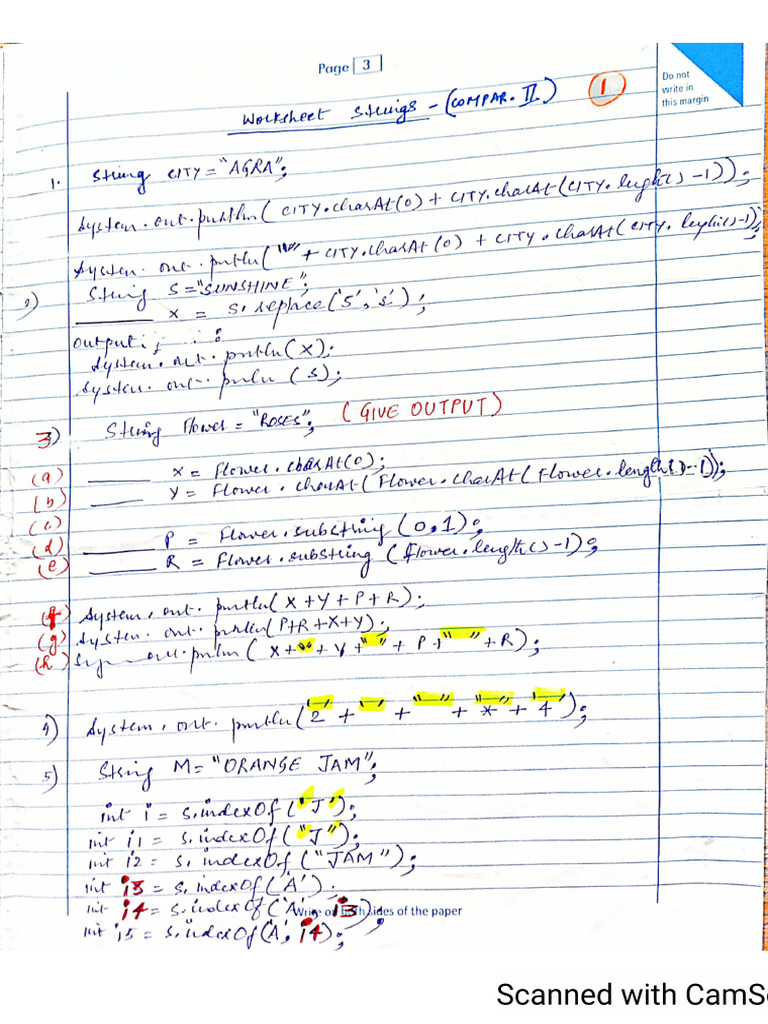 Page 3
Do not
write in
this margin
Worksheet Strings - (COMPAR. II) 1
1. String CITY = "AGRA";
System.out.println( CITY.charAt(0) + CITY.charAt(CITY.length() -1));
System.out.println( "" + CITY.charAt(0) + CITY.charAt( CITY.length()-1));
2) String S = "SUNSHINE";
______ X = S.replace('S','s');
Output:
System.out.println(X);
System.out.println(s);
3) String Flower = "ROSES"; (GIVE OUTPUT)
(a) ______ X = Flower.charAt(0);
(b) ______ Y = Flower.charAt(Flower.charAt(Flower.length()-1));
(c)
(d) ______ P = Flower.substring(0,1);
(e) ______ R = Flower.substring(flower.length()-1);
(f) System.out.println(X+Y+P+R);
(g) System.out.println(P+R+X+Y);
(h) out.println( X+""+Y+" "+P+" "+R);
4) System.out.println('2' + ' ' + " " + "*" + '4');
5) String M= "ORANGE JAM";
int i = s.indexOf('J');
int i1 = s.indexOf("J");
int i2 = s.indexOf("JAM");
int i3 = s.indexOf('A').
int i4 = s.indexOf('A', i3);
Write on both sides of the paper
int i5 = s.indexOf('A', i4);
Scanned with CamSc